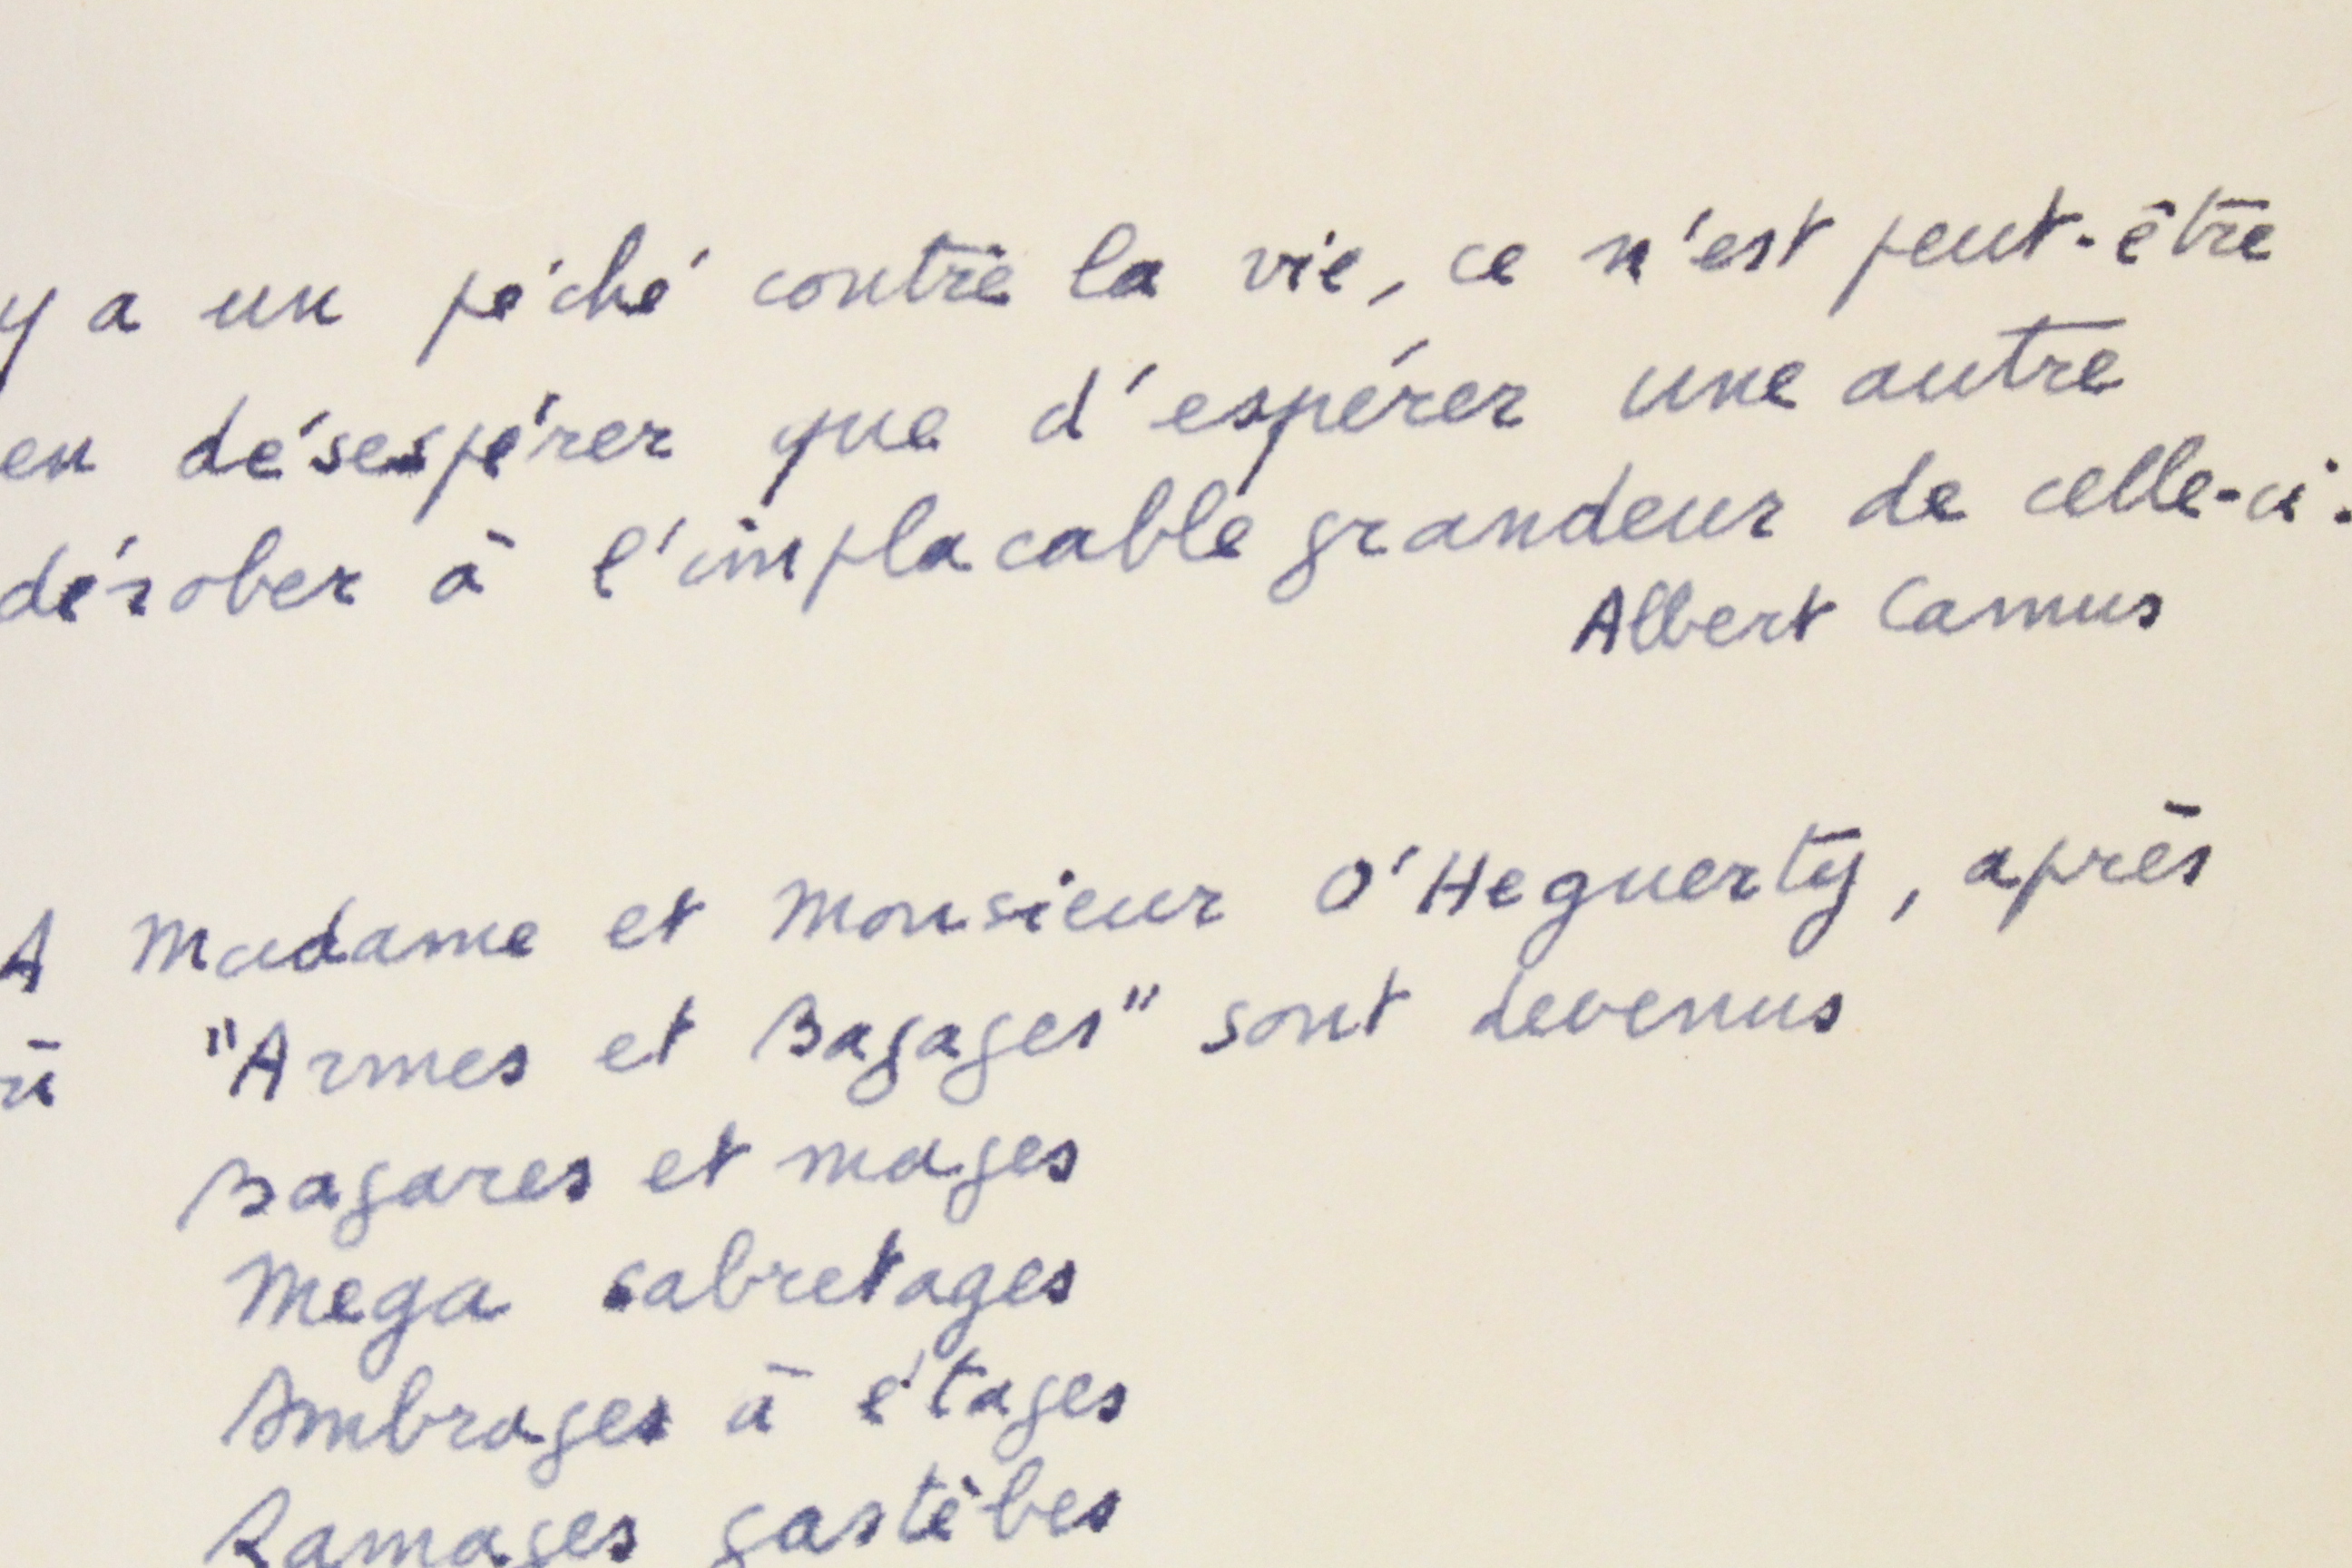 y a un péché contre la vie, ce n'est peut-être
en désespérer que d'espérer une autre
dérober à l'implacable grandeur de celle-ci.
Albert Camus
A Madame et Monsieur O'Heguerty, après
"Armes et Bagages" sont devenus
Bagares et mages
Mega sabretages
Ambrages à étages
Ramages gastèbes